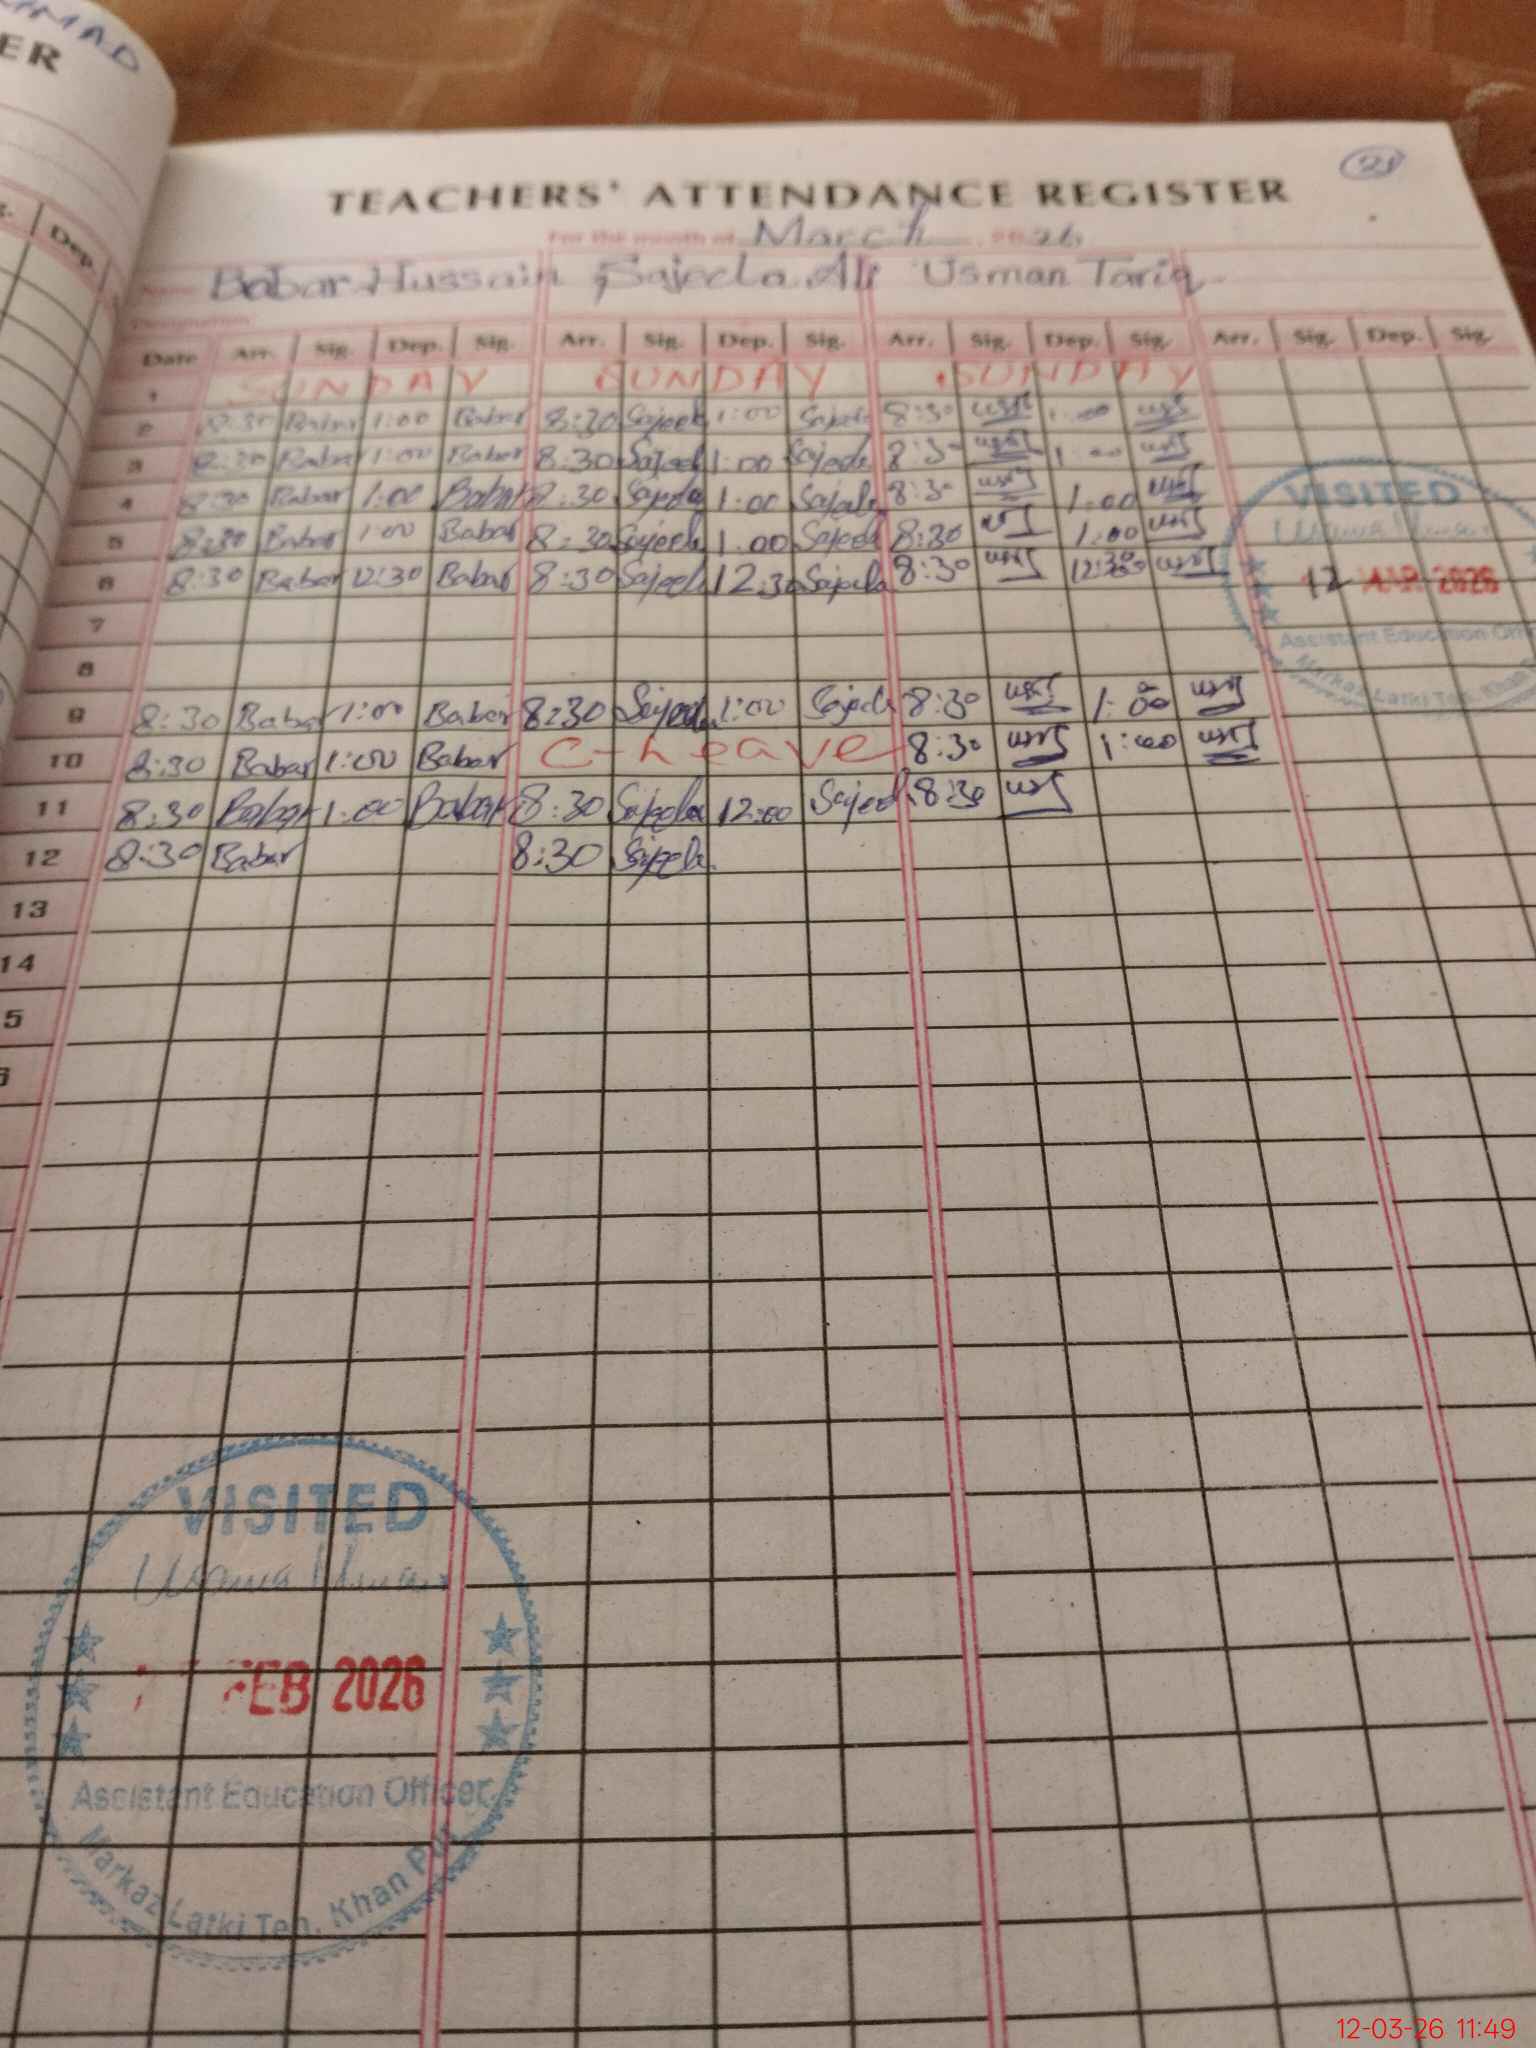 MMAD
ER
Dep.
21
TEACHERS' ATTENDANCE REGISTER
For the month of March 2026
Name Babar Hussain Sajeela Ali Usman Tariq
Designation
Date Arr. Sig. Dep. Sig. Arr. Sig. Dep. Sig. Arr. Sig. Dep. Sig. Arr. Sig. Dep. Sig.
1 SUNDAY SUNDAY SUNDAY
2 8:30 Babar 1:00 Babar 8:30 Sajeela 1:00 Sajeela 8:30 1:00
3 8:30 Babar 1:00 Babar 8:30 Sajeela 1:00 Sajeela 8:30 1:00
4 8:30 Babar 1:00 Babar 8:30 Sajeela 1:00 Sajeela 8:30 1:00
5 8:30 Babar 1:00 Babar 8:30 Sajeela 1:00 Sajeela 8:30 1:00
6 8:30 Babar 12:30 Babar 8:30 Sajeela 12:30 Sajeela 8:30 12:30
7
8
9 8:30 Babar 1:00 Babar 8:30 Sajeela 1:00 Sajeela 8:30 1:00
10 8:30 Babar 1:00 Babar C-Leave 8:30 1:00
11 8:30 Babar 1:00 Babar 8:30 Sajeela 12:00 Sajeela 8:30
12 8:30 Babar 8:30 Sajeela
13
14
5
6
VISITED
12 MAR 2026
Assistant Education Offi
Markaz Latki Teh. Khan
VISITED
FEB 2026
Assistant Education Officer
Markaz Latki Teh. Khan Pur
12-03-26 11:49